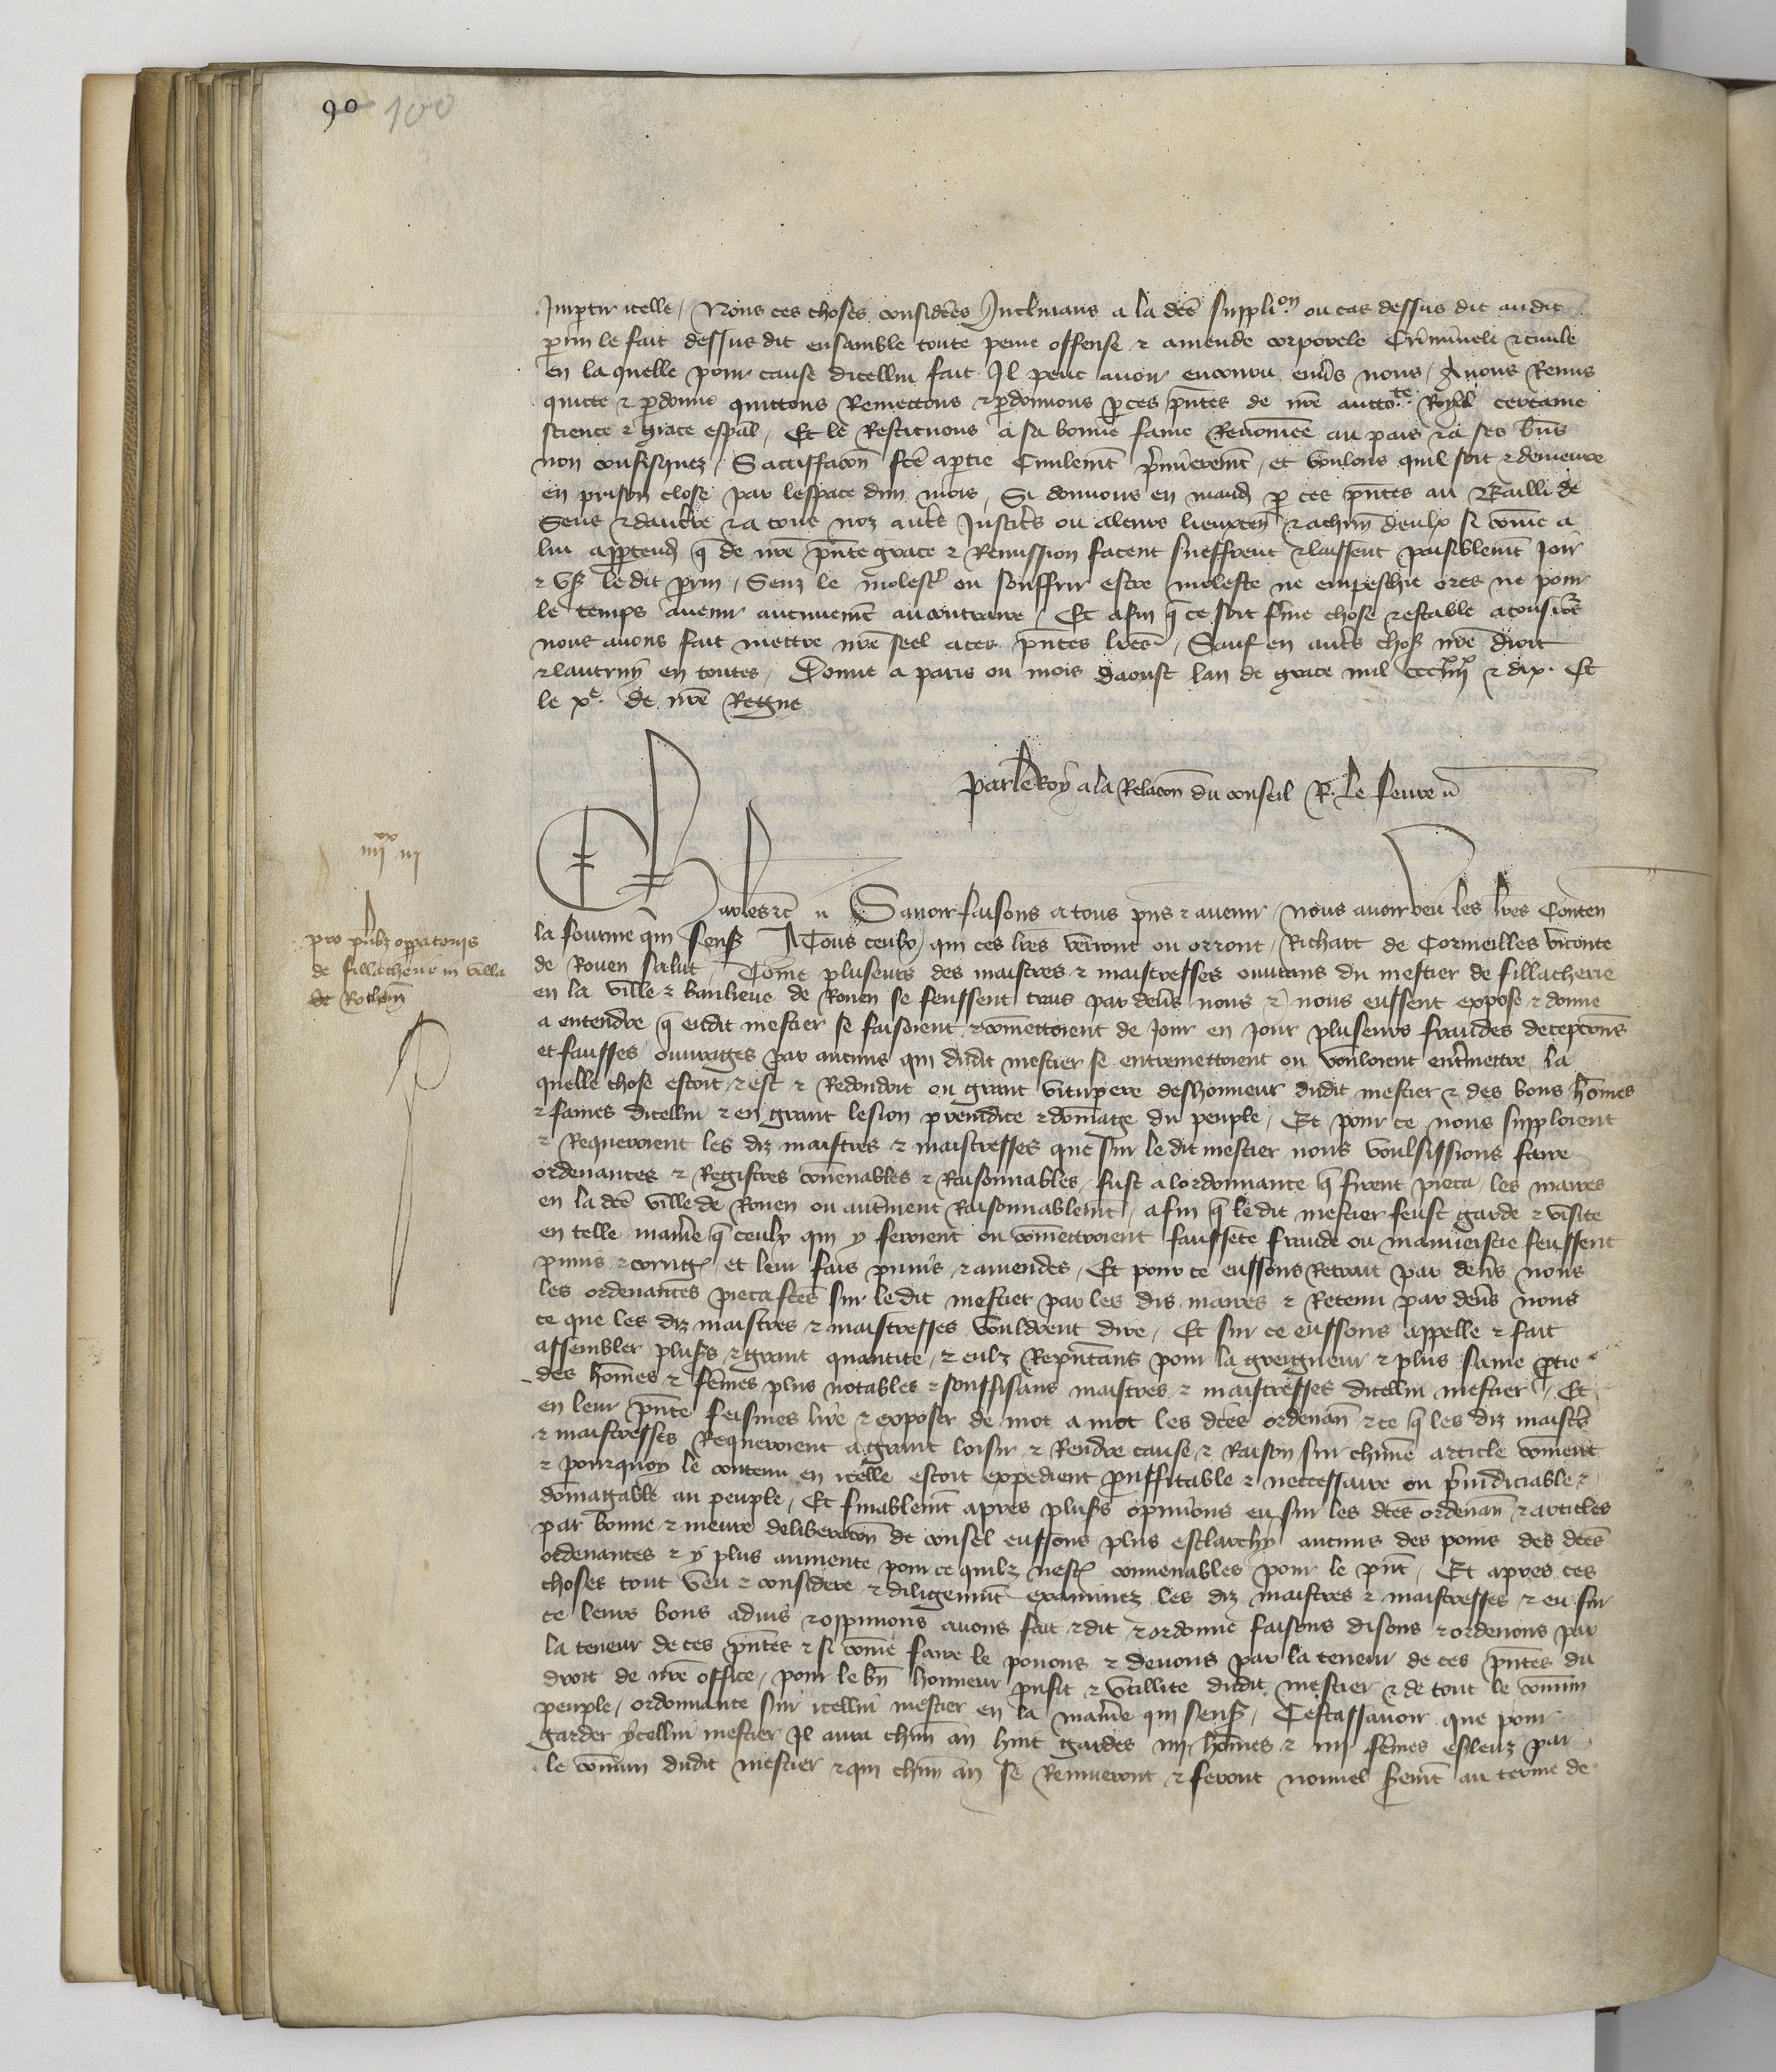 90 100
Impartir icelle / Nous ces choses considerées Inclinans a la dcē suppliōn ou cas dessus dit audit
perrin le fait dessus dit ensamble toute peine offense & amende corporele Criminele & civile
en la quelle pour cause dicellui fait Il peut avoir encouru env̄s nous / Avons Remis
quicté & pardonné quittons Remettons & pardonnons par ces pn̄tes de nrē auctoté Royal certaine
science & grace espāl / Et le Restituons a sa bonne fame Renōmee au pais & a ses bn̄s
non confisquez / Satisfaccōn fcē a partie Civilemt̄ pr̄mierement / et voulons quil soit & demeure
en prison close par lespace dun mois / Si donnons en mandt par ces pn̄tes au Bailli de
Sens & dauc̄rre & a tous noz aut̄s Justic̄s ou a leurs lieuxten̄ & a chūn deulx si cōme a
lui appartendra q̄ de nrē pn̄te grace & Remission facent sueffrent & laissent paisiblemt̄ Joir
& us̄ le dit perrin / Senz le molest̄ ou souffrir estre molesté ne empeschié ores ne pour
le temps avenir aucunemt̄ au contraire / Et afin q̄ ce soit ferme chose & estable a tousjōrs
nous avons fait mettre nrē seel a ces pn̄tes lrēs / Sauf en aut̄s chos̄ nrē droit
& lautruy en toutes / Donné a paris ou mois daoust lan de grace mil ccc iiijxx & dix. Et
le xe. de nrē Regne
Par le Roy a la Relacōn du conseil R. le fevre
iiijxx iij
Charles &c̄ Savoir faisons a tous pn̄s & avenir / nous avoir veu les lrēs Conten
pro publ operatoriis
de fillacherie in villa
de Rothom̄
la fourme qui sensuit A Tous ceulx qui ces lrēs verront ou orront / Richart de Cormeilles viconte
de Rouen salut / Cōme pluseurs des maistres & maistresses ouvrans du mestier de fillacherie
en la ville & banlieue de Rouen se feussent traus par dev̄s nous & nous eussent exposé & donné
a entendre q̄ eudit mestier se faisoient & cōmettoient de Jour en Jour pluseurs fraudes decepcōns
et fausses ouvrages par aucuns qui dudit mestier se entremettoient ou vouloient ent̄mettre la
quelle chose estoit & est & Redondoit ou grant vitupere deshonneur dudit mestier & des bons hōmes
& fames dicellui & en grant lesion prejudice & dōmage du peuple / Et pour ce nous supploient
& Requeroient les diz maistres & maistresses que sur le dit mestier nous voulsissions faire
ordenances & Registres convenables & Raisonnables / fust a lordonnance q̄ firent pieca les maires
en la dcē ville de Rouen ou aut̄ment Raisonnablemt̄ / afin q̄ le dit mestier feust gardé & visité
en telle manīe q̄ ceulx qui y feroient ou cōmettroient fausseté fraude ou mauvaistie feussent
punis & corrigies et leur fais punis & amendés / Et pour ce eussons Retrait par dev̄s nous
les ordenances pieca fcēs sur le dit mestier par les dis maires & Retenu par dev̄s nous
ce que les diz maistres & maistresses vouldrent dire / Et sur ce eussons appellé & fait
assembler plus̄s & grant quantité & eulz Repn̄tans pour la greigneur & plus saine partie
des hōmes & fēmes plus notables & souffisans maistres & maistresses dicellui mestier / Et
en leur pn̄ce feismes lire & exposer de mot a mot les dcēs ordenān & ce q̄ les diz maistr̄s
& maistresses Requeroient a grant loisir & Rendre cause & Raison sur chūn article cōment
& pourquoy le contenu en icelle estoit expedient prouffitable & neccessaire ou prejudiciable &
dōmagable au peuple / Et finablemt̄ apres plus̄s opinīons eu sur les dcēs ordenān & articles
par bonne & meure deliberacōn de conseil eussons plus esclarchy aucuns des poins des dcēs
ordenances & y plus aumenté pour ce quilz nestoient convenables pour le pn̄t / Et apres ces
choses tout veu & considéré & diligenmt̄ examinez les diz maistres & maistresses & eu sur
ce leurs bons advis & oppinions avons fait & dit & ordonné faisons disons & ordenons par
la teneur de ces pn̄tes & si cōme faire le povons & devons par la teneur de ces pn̄tes du
droit de nrē office / pour le bn̄ honneur prouffit & utilité dudit mestier & de tout le cōmun
peuple / ordonnance sur icellui mestier en la manīe qui sensuit / Cest assavoir que pour
garder ycellui mestier Il aura chūn an huit gardes iiij hōmes & iiij fēmes esleuz par
le cōmun dudit mestier & qui chūn an se Remueront & feront nouvel serement au terme de